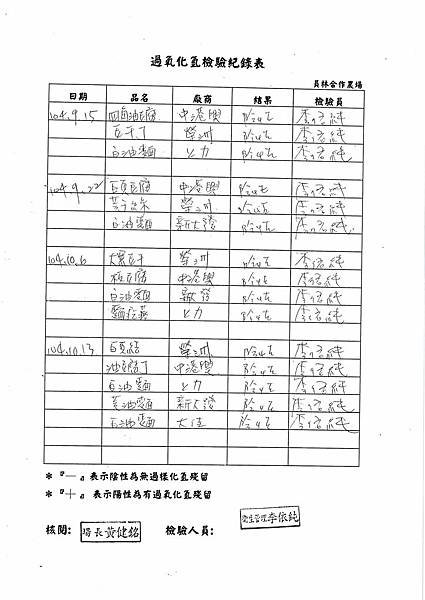 過氧化氫檢驗紀錄表
員林合作農場
日期 品名 廠商 結果 檢驗員
104.9.15 四角油豆腐 中港興 陰性 李依純
豆干丁 榮洲 陰性 李依純
白油麵 上力 陰性 李依純
104.9.22 中港興 陰性 李依純
榮洲 陰性 李依純
白油麵 新大發 陰性 李依純
104.10.6 大黑豆干 榮洲 陰性 李依純
板豆腐 中港興 陰性 李依純
白油麵 陰性 李依純
上力 陰性 李依純
104.10.13 榮洲 陰性 李依純
油豆腐丁 中港興 陰性 李依純
白油麵 上力 陰性 李依純
油麵 新大發 陰性 李依純
白油麵 大佳 陰性 李依純
* 『－』表示陰性為無過樣化氫殘留
* 『＋』表示陽性為有過氧化氫殘留
核閱: 場長黃健銘 檢驗人員: 衛生管理李依純